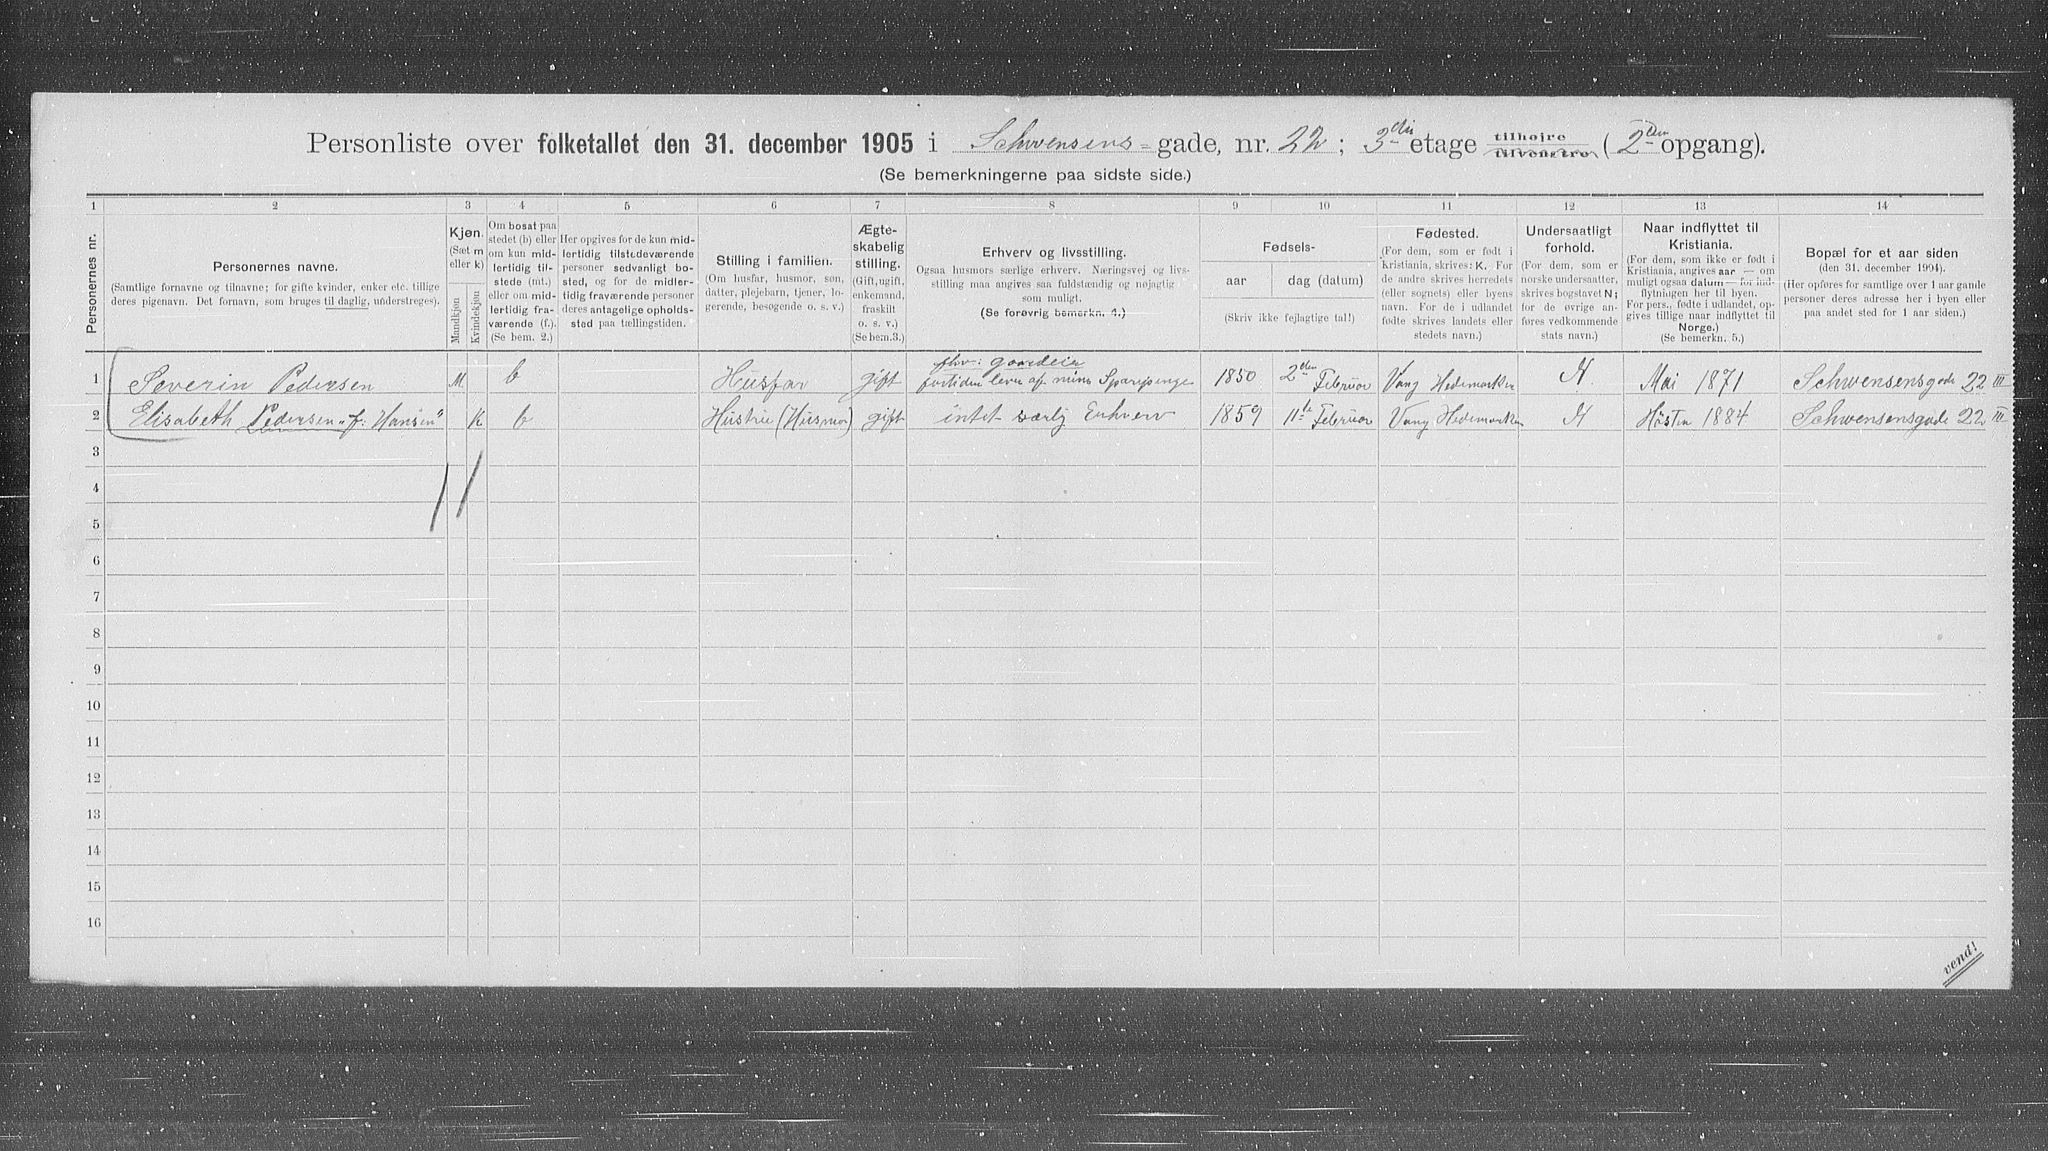 Personliste over folketallet den 31. december 1905 i Schwensens=gade, nr. 22; 3die etage tilhøjre tilvenstre (2den opgang).
(Se bemerkningerne paa sidste side.)
1 2 3 4 5 6 7 8 9 10 11 12 13 14
Personernes nr.
Personernes navne.
(Samtlige fornavne og tilnavne; for gifte kvinder, enker etc. tillige
deres pigenavn. Det fornavn, som bruges til daglig, understreges).
Kjøn.
(Sæt m
eller k)
Mandkjøn
Kvindekjøn
Om bosat paa
stedet (b) eller
om kun mid-
lertidig til-
stede (mt.)
eller om mid-
lertidig fra-
værende (f.).
(Se bem. 2.)
Her opgives for de kun mid-
lertidig tilstedeværende
personer sedvanligt bo-
sted, og for de midler-
tidig fraværende personer
deres antagelige opholds-
sted paa tællingstiden.
Stilling i familien.
(Om husfar, husmor, søn,
datter, plejebarn, tjener, lo-
gerende, besøgende o. s. v.)
Ægte-
skabelig
stilling.
(Gift, ugift,
enkemand,
fraskilt
o. s. v.)
(Se bem. 3.)
Erhverv og livsstilling.
Ogsaa husmors særlige erhverv. Næringsvej og livs-
stilling maa angives saa fuldstændig og nøjagtig
som muligt.
(Se forøvrig bemerkn. 4.)
Fødsels-
aar dag (datum)
(Skriv ikke fejlagtige tal!)
Fødested.
(For dem, som er født i
Kristiania, skrives: K. For
de andre skrives herredets
(eller sognets) eller byens
navn. For de i udlandet
fødte skrives landets eller
stedets navn.)
Undersaatligt
forhold.
(For dem, som er
norske undersaatter,
skrives bogstavet N;
for de øvrige an-
føres vedkommende
stats navn.)
Naar indflyttet til
Kristiania.
(For dem, som ikke er født i
Kristiania, angives aar — om
muligt ogsaa datum — for ind-
flytningen her til byen.
For pers., fødte i udlandet, op-
gives tillige naar indflyttet til
Norge.)
(Se bemerkn. 5.)
Bopæl for et aar siden
(den 31. december 1904).
(Her opføres for samtlige over 1 aar gamle
personer deres adresse her i byen eller
paa andet sted for 1 aar siden.)
fhv: gaardeier
1 Severin Pedersen M b Husfar gift fortiden lever af mine Sparepenge 1850 2den Februar Vang Hedemarken N. Mai 1871 Schwensensgade 22 III
2 Elisabeth Pedersen "f: Hansen" K b Hustru (Husmor) gift intet særlig Erhverv 1859 11te Februar Vang Hedemarken N Høsten 1884 Schwensensgade 22 III
3
4
5
6
7
8
9
10
11
12
13
14
15
16
vend!